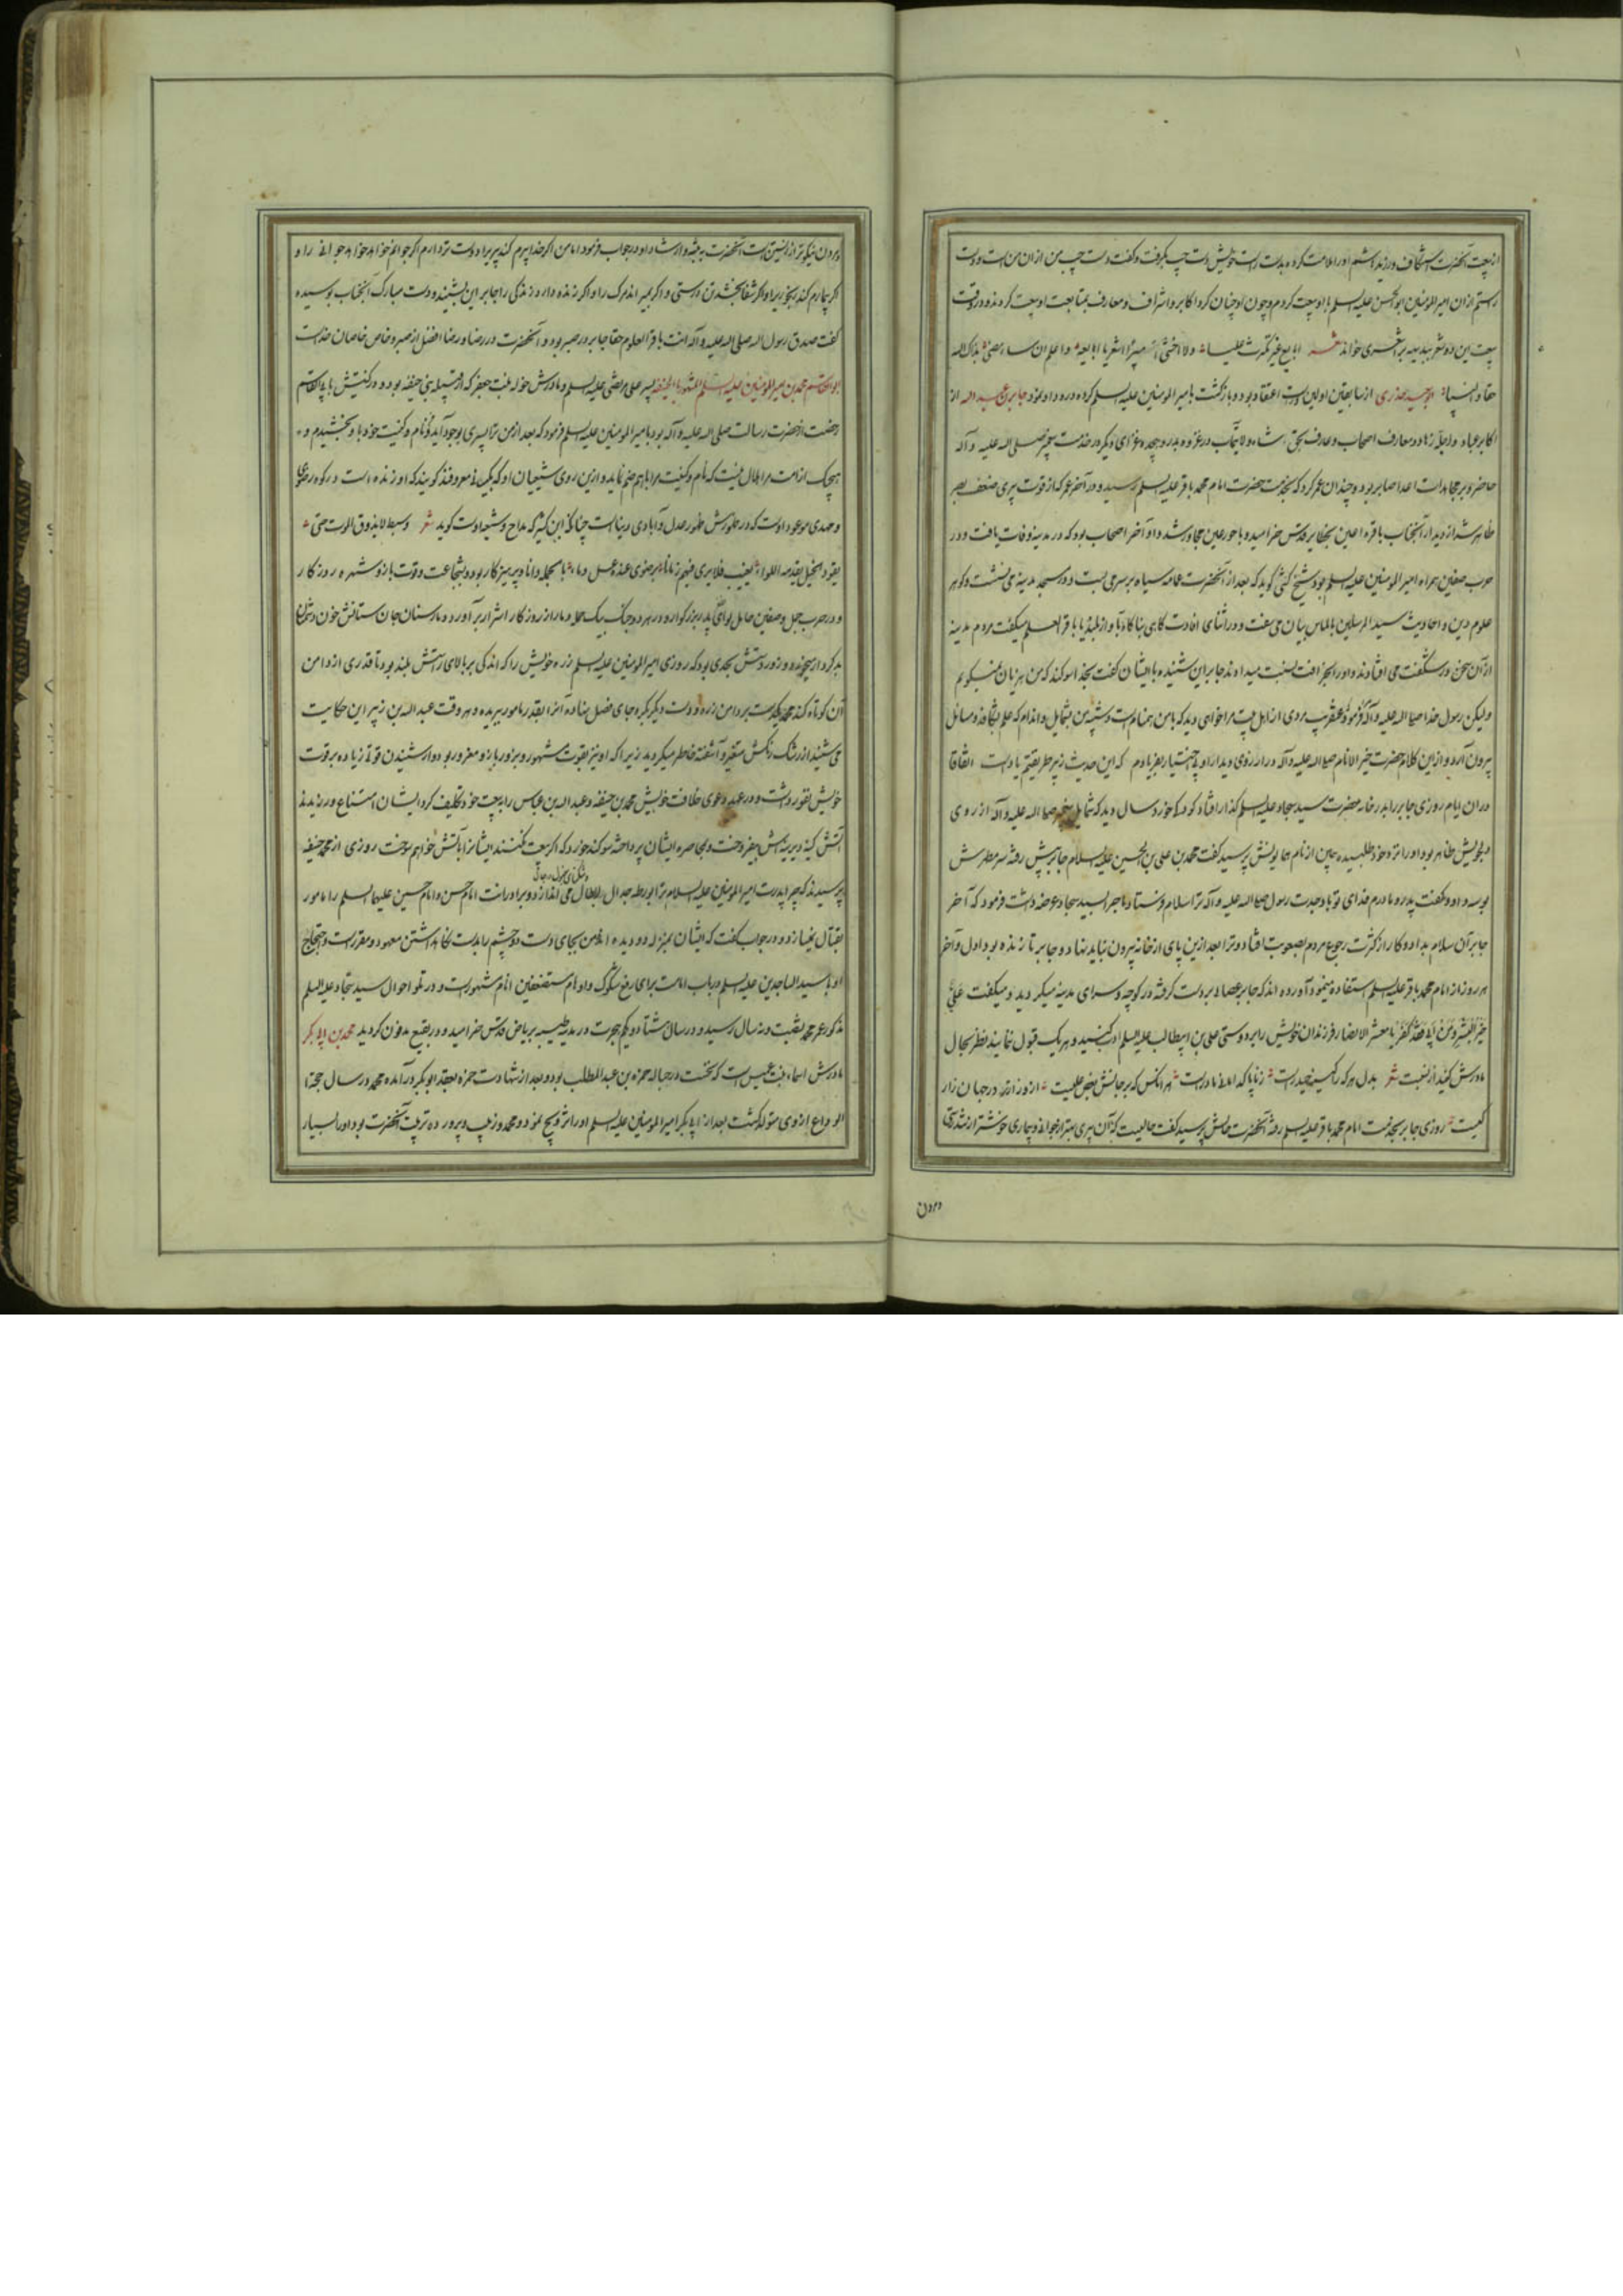 از بیعت آنحضرت استنکاف ورزید هاشم اورا ملامت کرده بدست راست خویش دست چپ بگرفت و گفت دست چپ من از ان من است و دست
راستم ازان امیرالمومنین ابوالحسن علیه السلم با او بیعت کردم و چون او چنان کرد اکابر و اشراف و معارف بمتابعت او بیعت کردند و در وقت
بیعت این دو شعر ببدیهه بر اشعری خواند شعر ابایع غیر مکترث علیا ولا اخشی امیرا اشعریا ابایعه و اعلم ان سارضی بذاک الله
حقا و النبیا ابوسعید خدری از سابقین اولین و راست اعتقاد بود و بازگشت بامیر المومنین علیه السلم کرده و در داو بود جابر بن عبد الله از
اکابر عباد و اجله زهاد و معارف اصحاب و عارف بحق شاه ولایتمآب در غزوه بدر و هیجده غزای دیگر در خدمت پیغمبر صلی الله علیه و آله
حاضر و بر مجاهدات اعدا صابر بود و چندان عمر کرد که بخدمت حضرت امام محمد باقر علیه السلم رسید و در آخر عمر که از قوت پیری ضعف بصر
ظاهر شد از دیدار آنجناب باقره اعین بحظایر قدس خرامید و با حورعین مجاور شد و او آخر اصحاب بود که در مدینه وفات یافت و در
حرب صفین همراه امیر المومنین علیه السلم بود شیخ کشی گوید که بعد از آنحضرت عمامه سیاه بر سر می بست و در مسجد مدینه می نشست و گوهر
علوم دین و احادیث سید المرسلین بالماس بیان می سفت و در اثنای افادت گاهی بناگاه باواز بلند یا باقر العلم میگفت مردم مدینه
از آن سخن در شگفت می افتادند و اورا بخرافت نسبت میدادند جابر این شنیده با ایشان گفت بخدا سوگند که من هزیان نمیگویم
ولیکن رسول خدا صلی الله علیه و آله فرمود عنقریب مردی از اهل بیت مرا خواهی دید که بامن همنام است و شبیه من بشمایل و اندام که علم بشکافد و مسائل
بیرون آرد و از این کلام حضرت خیر الانام صلی الله علیه و آله در ارزوی دیدار او بی اختیار بفریادم که این حدیث زهر طریقتیم یاد است اتفاقا
دران ایام روزی جابر را بدر خانه حضرت سید سجاد علیه السلم گذار افتاد کودک خورد سال دید که شمایل پیغمبر صلی الله علیه و آله از روی
دلجویش ظاهر بود اورا نزد خود طلبیده همین از نام همایونش پرسید گفت محمد بن علی بن الحسین علیه السلام جابر پیش رفته سر مطهرش
بوسه داد و گفت پدر و مادرم فدای تو باد جدت رسول صلی الله علیه و آله ترا سلام فرستاد ماجرا بسید سجاد عرضه داشت فرمود که آخر
جابر آن سلام بداد و کار از کثرت رجوع مردم بصعوبت افتاد و ترا بعد ازین پای از خانه بیرون نباید نهاد و جابر تا زنده بود اول و آخر
هر روز از امام محمد باقر علیه السلم استفاده مینمود آورده اند که جابر عصا بر دست گرفته در کوچه و سرای مدینه میگردید و میگفت علی
خیر البشر و من ابی فقد کفر یا معشر الانصار فرزندان خویش را بر دوستی علی بن ابیطالب علیه السلم ادب کنید و هر یک قبول ننمایند نظر بحال
مادرش کنید از نسبت شعر بدل هر که را کین حیدر است زناپاکی اصل مادر است هر انکس که بر جانش بغض علیست ازو زار تر در جهان زار
کیست روزی جابر بخدمت امام محمد باقر علیه السلم رفته آنحضرت حالش پرسید گفت حالیست که آن پیری بهتر از جوانی و بیماری خوشتر از تندرستی
و مردن
و مردن نیکوتر از زیستن است آنحضرت به تنبیه و ارشاد او در جواب فرمود اما من اگر خدا پیرم کند پیری را دوست تر دارم اگر جوانم خواهد خواهد جوانی را و
اگر بیمارم کند رنجوری را و اگر شفا بخشد تندرستی و اگر بمیراندم مرگ را و اگر زنده دارد زندگی را جابر این بشنید و دست مبارک آنجناب بوسیده
گفت صدق رسول الله صلی الله علیه و آله انت باقر العلوم حقا جابر در صبر بود و آنحضرت در رضا و رضا افضل از صبر و خاص خاصان خداست
ابو القاسم محمد بن امیر المومنین علیه السلم المشهور بابن الحنفیه پسر علی مرتضی علیه السلم و مادرش خوله بنت جعفر که از قبیله بنی حنیفه بود و در کنیتش بابی القاسم
رخصت از حضرت رسالت صلی الله علیه و آله بود بامیر المومنین علیه السلم فرمود که بعد از من ترا پسری بوجود آید و نام و کنیت خود باو بخشیدم و
هیچیک از امت مرا حلال نیست که نام و کنیت مرا باهم ضم نماید و ازین روی شیعیان او که بکیسانی معروفند گویند که او زنده است در کوه رضوی
و مهدی موعود اوست که در ظهورش ظهور عدل و آبادی دنیاست چنانکه ابن کثیر که مداح و شیعه اوست گوید شعر وسبط لا یذوق الموت حتی
یقود الخیل یقدمه اللواء یغیب فلا یری فیهم زمانا برضوی عنده عسل و ماء بالجمله دانا و پرهیزکار بود و بشجاعت و قوت بازو شهره روزگار
و در حرب جمل و صفین حامل لوای پدر بزرگوار و در هر دو جنگ بیک حمله دمار از روزگار اشرار بر آورد و مار سنان جان ستانش خون دشمنان
بدکردار میخورد و زور دستش بحدی بود که روزی امیر المومنین علیه السلم زره خویش را که اندکی بر بالای راستش بلند بود تا قدری از دامن
آن کوتاه کند محمد یکدست بر دامن زره و دست دیگر بر جای فضل نهاده آنرا بقدر مامور ببریده و هر وقت عبد الله بن زبیر این حکایت
می شنید از رشک رنگش متغیر و آشفته خاطر میگردید زیرا که او نیز بقوت مشهور و بزور بازو مغرور بود و از شنیدن قوت زیاده بر قوت
خویش نفور داشت و در عهد دعوی خلافت خویش محمد بن حنیفه و عبد الله بن عباس را به بیعت خود تکلیف کرد ایشان امتناع ورزیدند
آتش کینه دیرینه اش بیفروخت و بمحاصره ایشان پرداخته سوگند خورد که اگر بیعت نکنند ایشانرا بآتش خواهم سوخت روزی از محمد حنیفه
پرسیدند که چرا پدرت امیر المومنین علیه السلام ترا بورطه جدال ابطال می اندازد و برادرانت امام حسن و امام حسین علیهما السلم را مامور
بقتال نمیسازد و در جواب گفت که ایشان بمنزله دو دیده اند و من بجای دست و چشم را بدست نگاه داشتن معهود و مقرر است و احتجاج
او با سید الساجدین علیه السلم در باب امامت برای رفع شکوک و اوهام مستضعفین انام مشهور است و در تلو احوال سید سجاد علیه السلم
مذکور عمر محمد بشصت و نه سال رسید و در سال هشتاد و یکم هجرت در مدینه طیبه بریاض قدس خرامید و در بقیع مدفون گردید محمد بن ابو بکر
مادرش اسماء بنت عمیس است که نخست در حباله حمزه بن عبد المطلب بود و بعد از شهادت حمزه بعقد ابو بکر در آمده محمد در سال حجة
الوداع از وی متولد گشت بعد از ابی بکر امیر المومنین علیه السلم اورا تزویج نمود و محمد ربیب و پرورده تربیت آنحضرت بود اورا بسیار